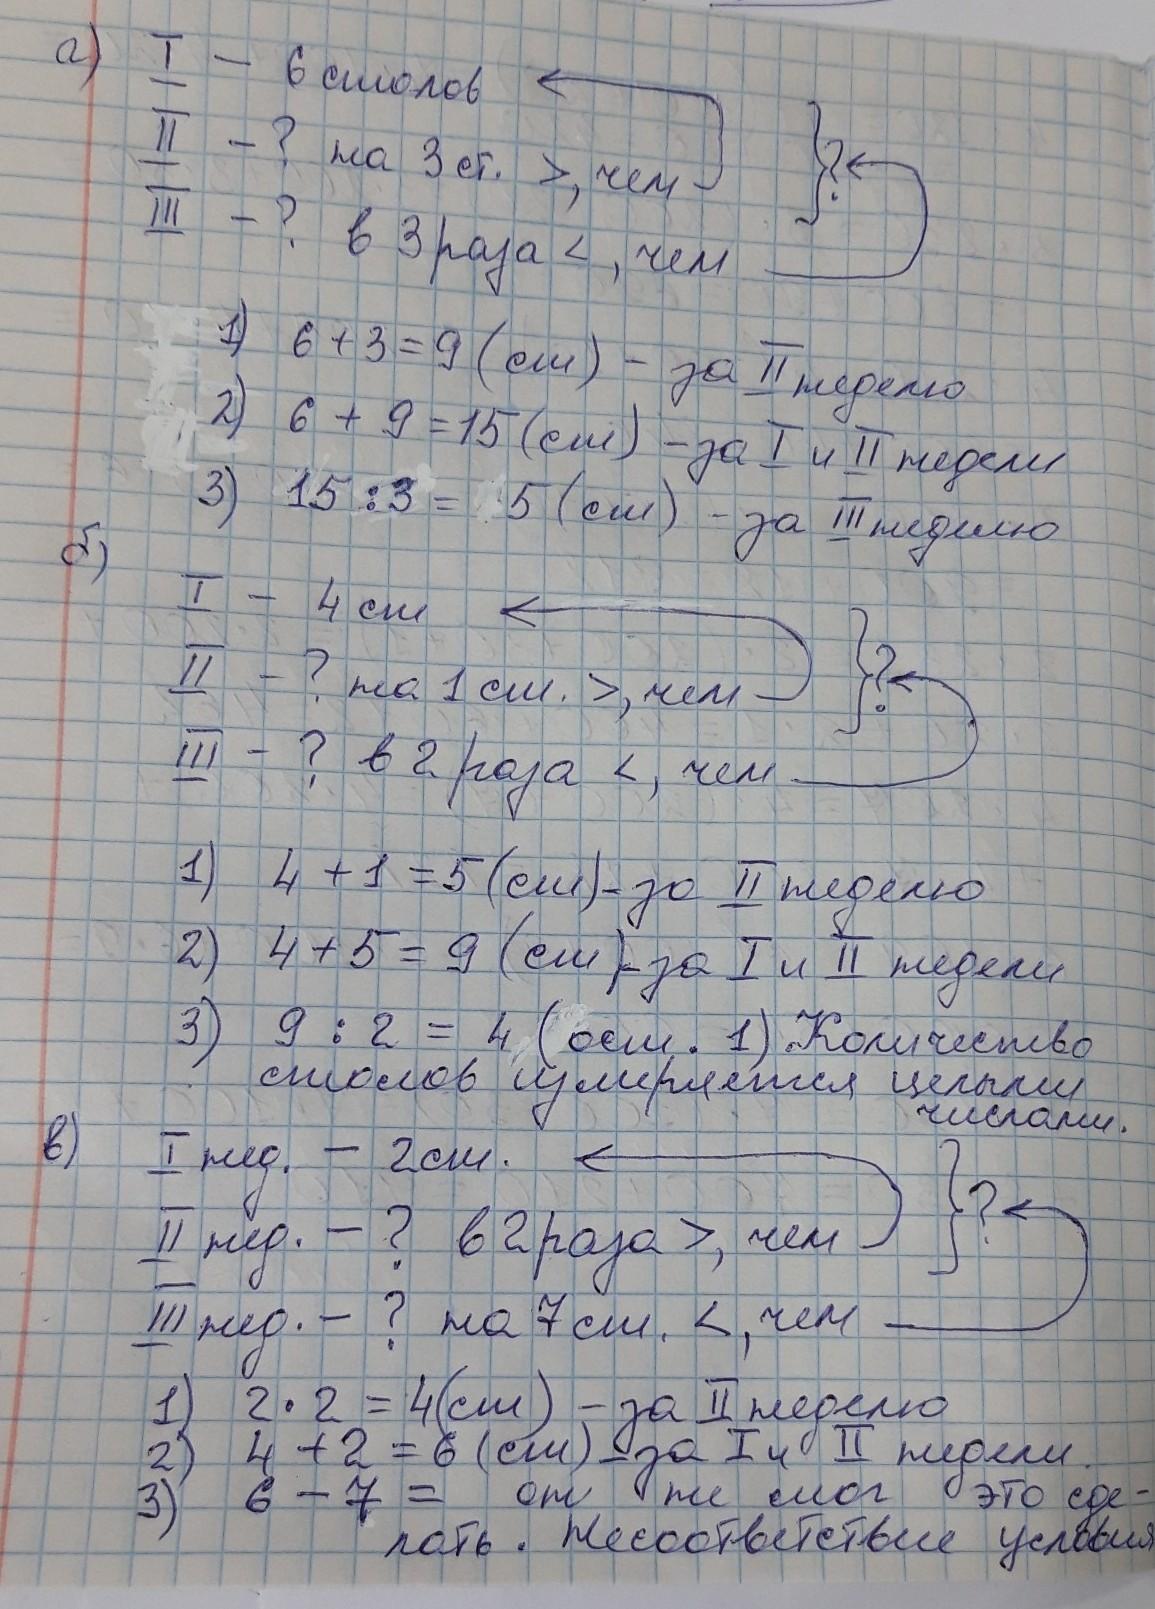 а) I – 6 столов
II – ? на 3 ст. >, чем
}?
III – ? в 3 раза <, чем
1) 6 + 3 = 9 (ст) – за II неделю
2) 6 + 9 = 15 (ст) – за I и II недели
3) 15 : 3 = 5 (ст) – за III неделю
б)
I – 4 ст
II – ? на 1 ст. >, чем
}?
III – ? в 2 раза <, чем
1) 4 + 1 = 5 (ст) – за II неделю
2) 4 + 5 = 9 (ст) – за I и II недели
3) 9 : 2 = 4 (ост. 1). Количество
столов измеряется целыми
числами.
в) I нед. – 2 ст.
II нед. – ? в 2 раза >, чем
}?
III нед. – ? на 7 ст. <, чем
1) 2 · 2 = 4 (ст) – за II неделю
2) 4 + 2 = 6 (ст) – за I и II недели.
3) 6 – 7 = он не смог это сде-
лать. Несоответствие условия